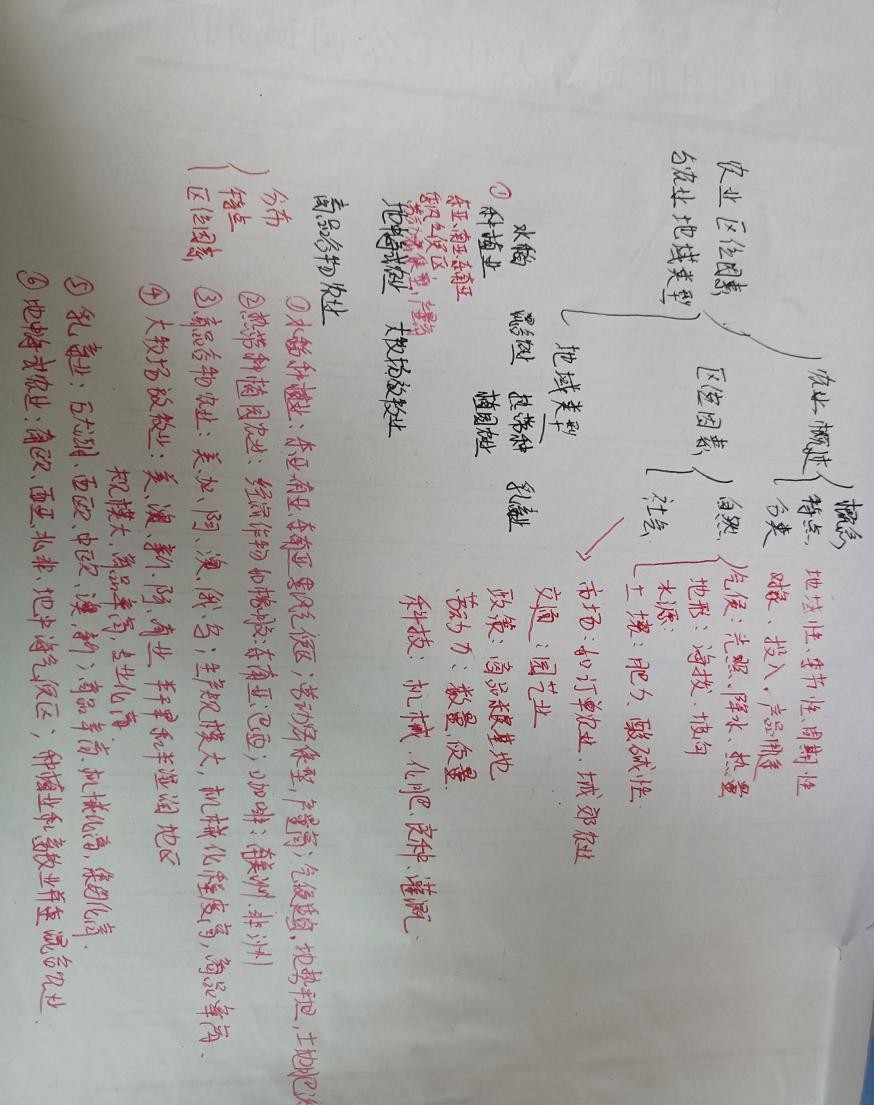 农业概述
概念
特点
分类
地域性、季节性、周期性
对象、投入、产品用途
农业区位因素
与农业地域类型
区位因素
自然
社会
气候：光照、降水、热量
地形：海拔、坡向
水源：
土壤：肥力、酸碱性
市场：如订单农业、城郊农业
交通：园艺业
政策：商品粮基地
劳动力：数量、质量
科技：机械、化肥、良种、灌溉.
地域类型
水稻
① 种植业
混合农业
热带种
植园农业
乳畜业
东亚、南亚、东南亚
季风气候区
地中海式农业
大牧场放牧业
商品谷物农业
分布
特点
区位因素
①水稻种植业：东亚南亚东南亚季风气候区；劳动力密集型，产量高；气候适宜，地势平坦，土地肥沃
②热带种植园农业：经济作物
东南亚
巴西；咖啡：南美洲、非洲
③商品谷物农业：美、加、阿、澳、俄、乌；生产规模大，机械化程度高，商品率高、
④大牧场放牧业：美、澳、新、阿、南非 干旱和半湿润地区
规模大、商品率高、专业化高.
⑤乳畜业：五大湖、西欧、中欧、澳、新；商品率高、机械化高，集约化高.
⑥地中海式农业：南欧、西亚、北非、地中海气候区；种植业和畜牧业并重混合农业.